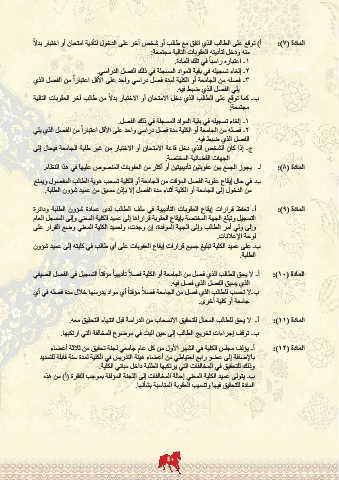 المادة (٧): أ) توقع على الطالب الذي اتفق مع طالب أو شخص آخر على الدخول لتأدية امتحان أو اختبار بدلاً
منه ودخل لتأديته العقوبات التالية مجتمعة:
١- اعتباره راسباً في تلك المادة.
٢- إلغاء تسجيله في بقية المواد المسجلة في ذلك الفصل الدراسي.
٣- فصله من الجامعة أو الكلية لمدة فصل دراسي واحد على الأقل اعتباراً من الفصل الذي
يلي الفصل الذي ضبط فيه.
ب- كما توقع على الطالب الذي دخل الامتحان أو الاختبار بدلاً من طالب آخر العقوبات التالية
مجتمعة:
١- إلغاء تسجيله في بقية المواد المسجلة في ذلك الفصل.
٢- فصله من الجامعة أو الكلية مدة فصل دراسي واحد على الأقل اعتباراً من الفصل الذي يلي
الفصل الذي ضبط فيه.
ج- إذا كان الشخص الذي دخل قاعة الامتحان أو الاختبار من غير طلبة الجامعة فيحال إلى
الجهات القضائية المختصة.
المادة (٨): أ- يجوز الجمع بين عقوبتين تأديبيتين أو أكثر من العقوبات المنصوص عليها في هذا النظام.
ب- في حال إيقاع عقوبة الفصل المؤقت من الجامعة أو الكلية تسحب هوية الطالب المفصول ويمنع
من الدخول إلى الجامعة أو الكلية أثناء مدة الفصل إلا بإذن مسبق من عميد شؤون الطلبة.
المادة (٩): أ- تحفظ قرارات إيقاع العقوبات التأديبية في ملف الطالب لدى عمادة شؤون الطلبة ودائرة
التسجيل وتبلغ الجهة المختصة بإيقاع العقوبة قراراها إلى عميد الكلية المعني وإلى المسجل العام
وإلى ولي أمر الطالب وإلى الجهة الموفدة، إن وجدت، ولعميد الكلية المعني وضع القرار على
لوحة الإعلانات.
ب- على عميد الكلية تبليغ جميع قرارات إيقاع العقوبات على أي طالب في كليته إلى عميد شؤون
الطلبة.
المادة (١٠): أ- لا يحق للطالب الذي فصل من الجامعة أو الكلية فصلاً تأديبياً مؤقتاً التسجيل في الفصل الصيفي
الذي يسبق الفصل الذي فصل فيه.
ب- لا تحسب للطالب الذي فصل من الجامعة فصلاً مؤقتاً أي مواد يدرسها خلال مدة فصله في أي
جامعة أو كلية أخرى.
المادة (١١): أ- لا يحق للطالب المحال للتحقيق الانسحاب من الدراسة قبل انتهاء التحقيق معه.
ب- توقف إجراءات تخريج الطالب إلى حين البت في موضوع المخالفة التي ارتكبها.
المادة (١٢): أ- يؤلف مجلس الكلية في الشهر الأول من كل عام جامعي لجنة تحقيق من ثلاثة أعضاء
بالإضافة إلى عضو رابع احتياطي من أعضاء هيئة التدريس في الكلية لمدة سنة قابلة للتمديد
وذلك للتحقيق في المخالفات التي يرتكبها الطلبة داخل مباني الكلية.
ب- يتولى عميد الكلية المعني إحالة المخالفات إلى اللجنة المؤلفة بموجب الفقرة (أ) من هذه
المادة للتحقيق فيها وتنسيب العقوبة المناسبة بشأنها.